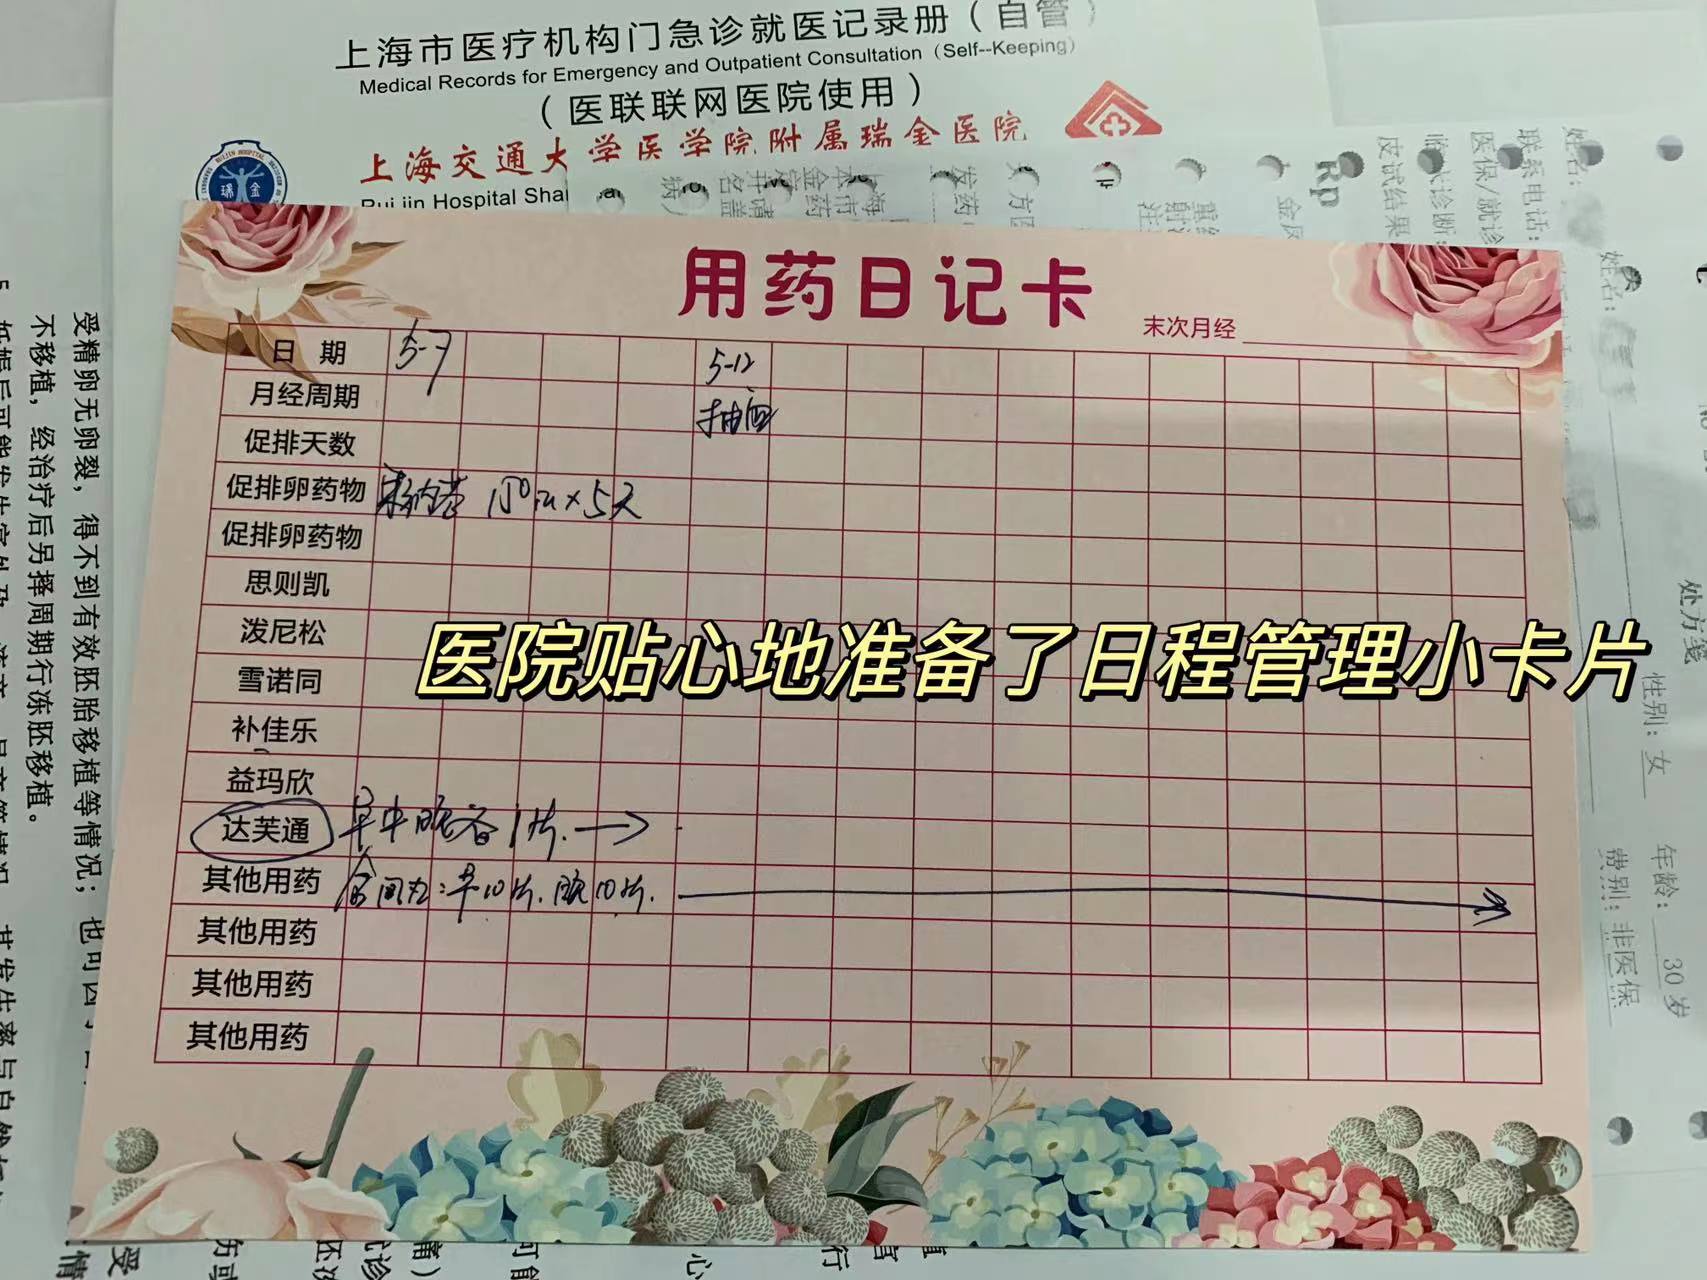 上海市医疗机构门急诊就医记录册（自管）
Medical Records for Emergency and Outpatient Consultation (Self--Keeping)
（医联联网医院使用）
上海交通大学医学院附属瑞金医院
Rui jin Hospital Shan
用药日记卡
末次月经
日 期 5-7 5-12
月经周期 抽血
促排天数
促排卵药物 150iu×5天
促排卵药物
思则凯
泼尼松
雪诺同
补佳乐
益玛欣
达芙通 早中晚各1片.
其他用药 早10片.晚10片.
其他用药
其他用药
其他用药
医院贴心地准备了日程管理小卡片
受精卵无卵裂，得不到有效胚胎移植等情况；也可
不移植，经治疗后另择周期行冻胚移植。
Rp
姓名：
联系电话：
医保/就诊
临床诊断：
皮试结果
姓名：
处方笺
性别：女
年龄：30岁
费别：非医保